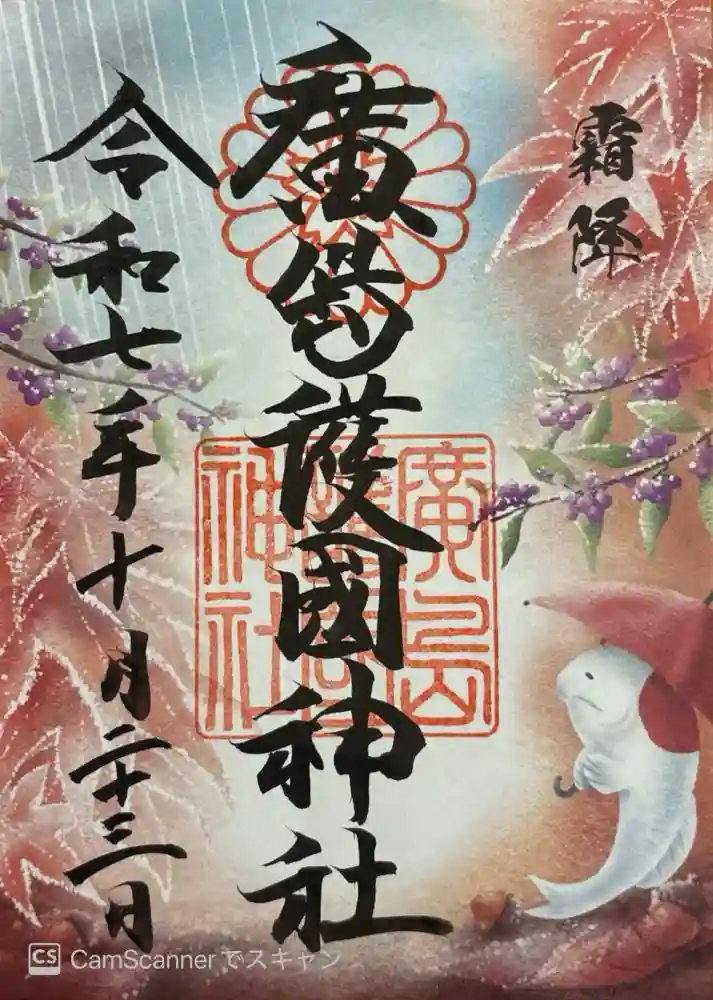 霜降
廣島護國神社
令和七年十月二十三日
廣島
護國
神社
CS CamScannerでスキャン